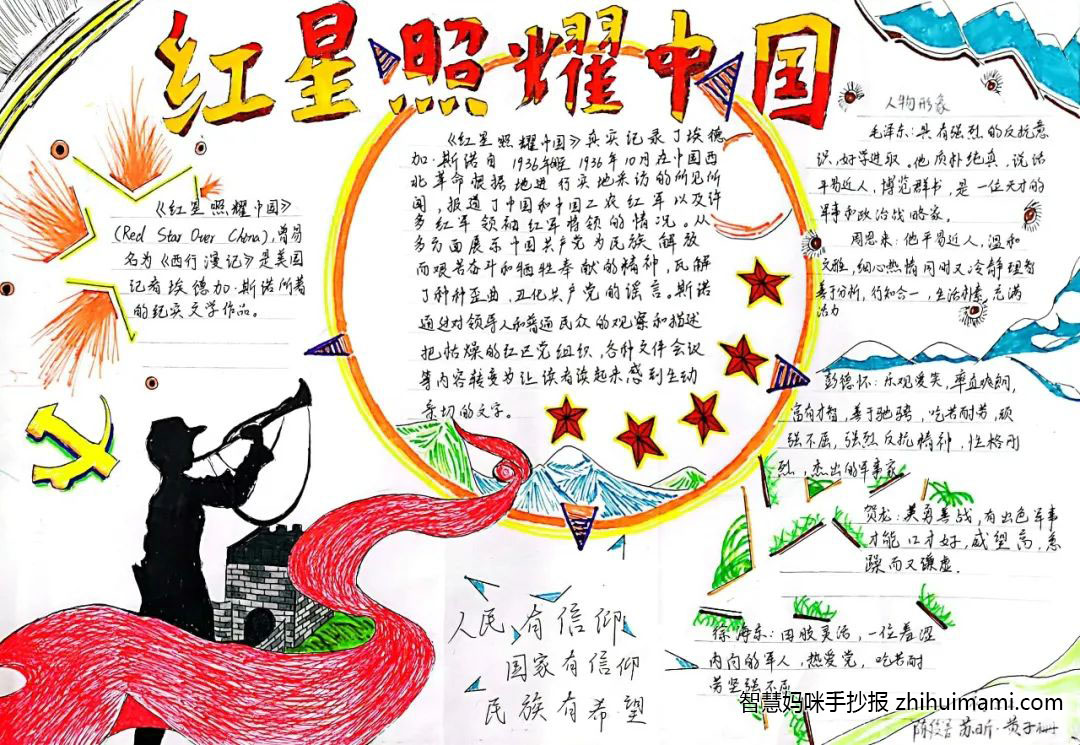 红星照耀中国
《红星照耀中国》
(Red Star Over China),曾易
名为《西行漫记》是美国
记者埃德加·斯诺所著
的纪实文学作品。
《红星照耀中国》真实记录了埃德
加·斯诺自1936年6月至1936年10月在中国西
北革命根据地进行实地采访的所见所
闻,报道了中国和中国工农红军以及许
多红军领袖红军将领的情况。从
多方面展示中国共产党为民族解放
而艰苦奋斗和牺牲奉献的精神,瓦解
了种种歪曲、丑化共产党的谣言。斯诺
通过对领导人和普通民众的观察和描述
把枯燥的红区党组织,各种文件会议
等内容转变为让读者读起来感到生动
亲切的文字。
人物形象
毛泽东:具有强烈的反抗意
识,好学进取。他质朴纯真,说话
平易近人,博览群书,是一位天才的
军事和政治战略家。
周恩来:他平易近人,温和
文雅,细心热情同时又冷静理智
善于分析,行知合一,生活朴素,充满
活力
彭德怀:乐观爱笑,率直爽朗,
富有才智,善于驰骋,吃苦耐劳,顽
强不屈,强烈反抗精神,性格刚
烈,杰出的军事家。
贺龙:英勇善战,有出色军事
才能口才好,威望高,急
躁而又谦虚.
徐海东:因败灵活,一位羞涩
内向的军人,热爱党,吃苦耐
劳坚强不屈
人民有信仰
国家有信仰
民族有希望
智慧妈咪手抄报 zhihuimami.com
苏昕·黄子